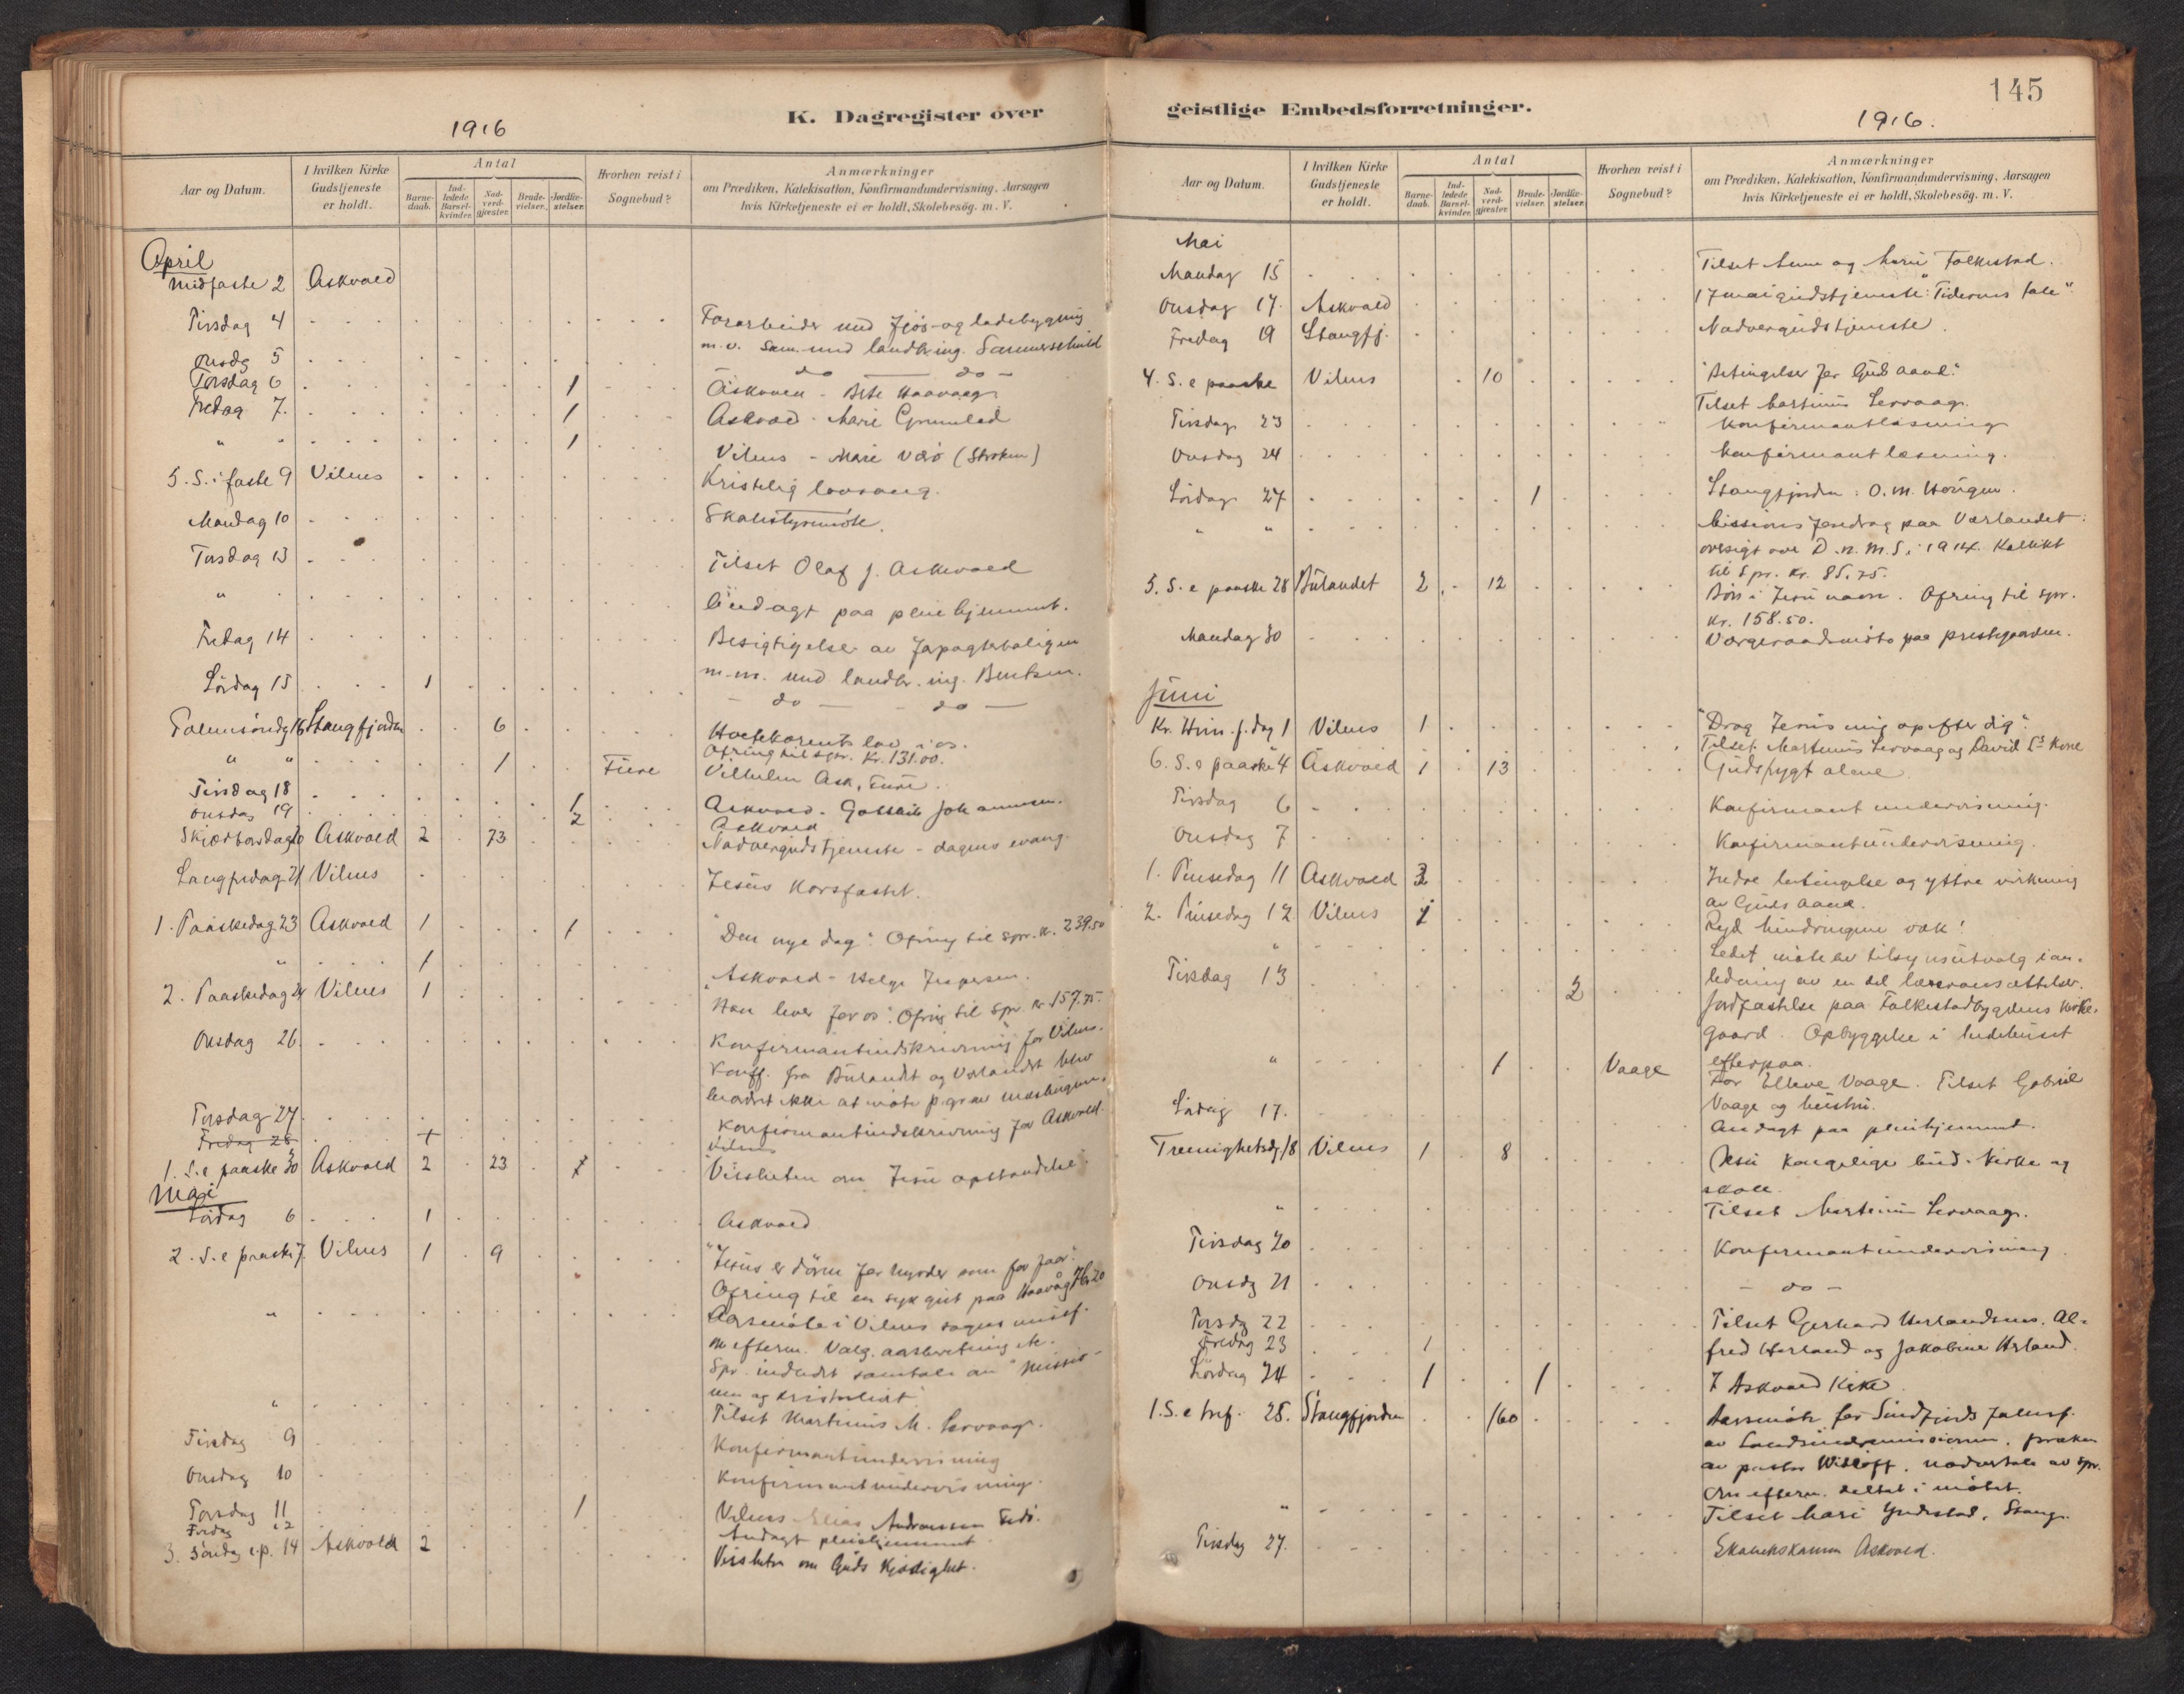 1916
K. Dagregister over
Aar og Datum.
I hvilken Kirke Gudstjeneste er holdt.
Antal
Barne-daab.
Ind-ledede Barsel-kvinder.
Nad-verd-gjester.
Brude-vielser.
Jordfæ-stelser.
Hvorhen reist i Sognebud?
Anmærkninger
om Prædiken, Katekisation, Konfirmandundervisning, Aarsagen
hvis Kirketjeneste ei er holdt, Skolebesög. m. V.
April
Midfaste 2 Askvold
Tirsdag 4 Forarbeider med fjös- og ladebygning
m.v. sam. med landbr.ing. Sommerschield
Onsdg 5 do do
Torsdag 6 1 Askvoll
Fredag 7. 1 Askvold - Marie
" " 1 Vilnes - Marie Værö
5. S. i faste 9 Vilnes Kristelig lovsang.
Mandag 10 Skolestyremöte.
Torsdag 13 Tilset Olaf J. Askvold
" Andagt paa pleiehjemmet.
Fredag 14 Besigtigelse av forpagterboligen
m.m. med landbr. ing. Bentsen.
Lördag 15 1 do do
Palmesöndg 16 Stangfjorden 6
Ofring til spr. Kr. 131.00.
" " 1 Fure Vilhelm Ask, Fure.
Tirsdag 18 1 Askvold - Johannesen.
Onsdag 19 2 Askvold
Skjærtorsdag 20 Askvold 2 73 Nadvergudstjeneste - dagens evang.
Langfredag 21 Vilnes Jesus korsfæstet.
1. Paaskedag 23 Askvold 1 1 "Den nye dag". Ofring til spr. kr. 239.50
" 1 Askvold - Helge Jespersen.
2. Paaskedag 24 Vilnes 1 "Han lever for os". Ofring til spr. kr 157.75.
Onsdag 26. Konfirmantindskrivning for Vilnes.
Konff. fra Bulandet og Værlandet blev
beordret ikke at möte p.gr.av mæslinger.
Torsdag 27. Konfirmantindskrivning for Askvold
Fredag 28 Vilnes
1. S. e paaske 30 Askvold 2 23 Vissheten om Jesu opstandelse.
Mai
Lördag 6 1 Askvold
2. S. e paaske 7. Vilnes 1 9 "Jesus er dören for hyrder som for faar".
Ofring til en syk gut paa Haavåg 76.20
" Aarsmöte i Vilnes sogns missf.
om efterm. Valg, aarsberetning etc.
Spr. indledet samtale om "Missio-
nen og
" Tilset Martinus M. Lervaag.
Tirsdag 9 Konfirmantundervisning
Onsdag 10 Konfirmantundervisning.
Torsdag 11 1 Vilnes Elias Andreassen
Fredag 12 Andagt pleiehjemmet
3. Söndg e.p. 14 Askvold 2 Vissheten om Guds kjærlighet.
geistlige Embedsforretninger.
145
1916.
Aar og Datum.
I hvilken Kirke Gudstjeneste er holdt.
Antal
Barne-daab.
Ind-ledede Barsel-kvinder.
Nad-verd-gjester.
Brude-vielser.
Jordfæ-stelser.
Hvorhen reist i Sognebud?
Anmærkninger
om Prædiken, Katekisation, Konfirmandundervisning, Aarsagen
hvis Kirketjeneste ei er holdt, Skolebesög. m. V.
Mai
Mandag 15 Tilset Anne og Marie Folkestad.
Onsdag 17. Askvold 17 mai gudstjeneste: "Tidernes tale".
Fredag 19 Stangfj. Nadvergudstjeneste.
4. S. e paaske Vilnes 10 "Betingelser for Guds aand".
Tilset Martinus Lervaag.
Tirsdag 23 Konfirmantlæsning
Onsdag 24 Konfirmantlæsning.
Lördag 27 1 Stangfjorden: O. M.
" " Missionsforedrag paa Værlandet:
oversigt over D.n.M.S. i 1914. Kollekt
til Spr. Kr. 85.75.
5. S. e paaske 28 Bulandet 2 12 Bön i Jesu navn. Ofring til spr.
Kr. 158.50.
Mandag 30 Værgeraadsmöte paa prestegaarden.
Juni
Kr. Him. f. dag 1 Vilnes 1 "Drag Jesus mig op efter dig".
Tilset Martinus Lervaag og David Ls kone
6. S. e paaske 4 Askvold 1 13 Gudsfrygt alene
Tirsdag 6 Konfirmantundervisning.
Onsdag 7 Konfirmantundervisning.
1. Pinsedag 11 Askvold 3 Indre betingelse og yttre virkning
av Guds aand.
2. Pinsedag 12 Vilnes 1 Ryd hindringene væk!
" Ledet möte av tilsynsutvalg i an-
ledning av en del læreransættelser.
Tirsdag 13 2 Jordfæstelse paa Folkestadbygdens kirke-
gaard. Opbyggelse i bedehuset
efterpaa.
" 1 Vaage For Elleve Vaage. Tilset Gabriel
Vaage og hustru.
Lördag 17. Andagt paa pleiehjemmet.
Treenighetsdg 18 Vilnes 1 8 Jesu kongelige bud. Kirke og
skole.
" Tilset Martinus Lervaag.
Tirsdag 20 Konfirmantundervisning
Onsdg 21 - do -
Torsdg 22 Tilset Gerhard Al-
Fredag 23 1 fred og Jakobine
Lördag 24 1 1 I Askvold Kirke
1. S. e tref. 25. Stangfjorden 160 Aarsmöte for Sundfjords
av Landsindremissionen. præken
av pastor Wisløff. nadvertale av spr.
Om efterm. deltat i mötet.
" Tilset Mari Stang.
Tirsdag 27. Askvold.